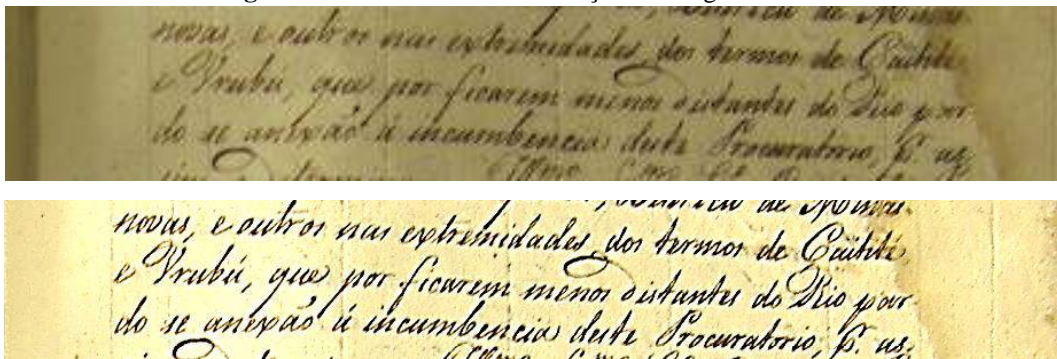 de Minas
novas, e outros nas extremidades dos termos de Caitité
e Vrubú, que por ficarem menos distantes do Rio par
do se anexão á incumbencia deste Procuratorio, p. as
de Minas
novas, e outros nas extremidades dos termos de Caitité
e Vrubú, que por ficarem menos distantes do Rio par
do se anexão á incumbencia deste Procuratorio, p. as